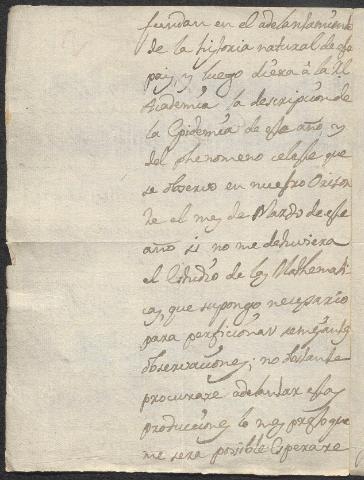 fundan en el adelantamiento
de la historia natural de este
pais, y luego diera â la Rl
Academia la descripcion de
la Epidemia de este año, y
del phenomeno celeste que
se observò en nuestro Orizon
te el mes de Marzo de este
año si no me detuviera
el Estudio de las Mathemati
cas, que supongo necesario
para perficionar semejantes
observaciones; no obstante
procurare adelantar estas
producciones lo mas presto que
me sera posible. Esperare